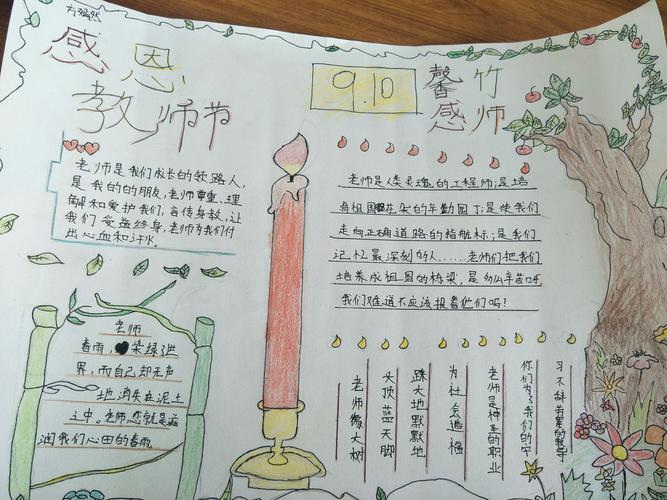 方嫣然
感恩
教师节
9.10
馨竹
感师
老师是我们成长的领路人,
是我的的朋友,老师尊重、理
解和爱护我们,言传身教,让
我们受益终身,老师为我们付
出心血和汗水。
老师是人类灵魂的工程师;是培
育祖国花朵的辛勤园丁;是使我们
走向正确道路的指航标;是我们
记忆最深刻的人......老师们把我们
培养成祖国的栋梁,是多么辛苦呀,
我们难道不应该报答他们吗!
老师
春雨,染绿了世
界,而自己却无声
地消失在泥土
之中。老师,您就是滋
润我们心田的春雨
老师像大树
头顶蓝天脚
踩大地默默地
为社会造福
老师是神圣的职业
你们为了我们的学
习不辞劳累的教导